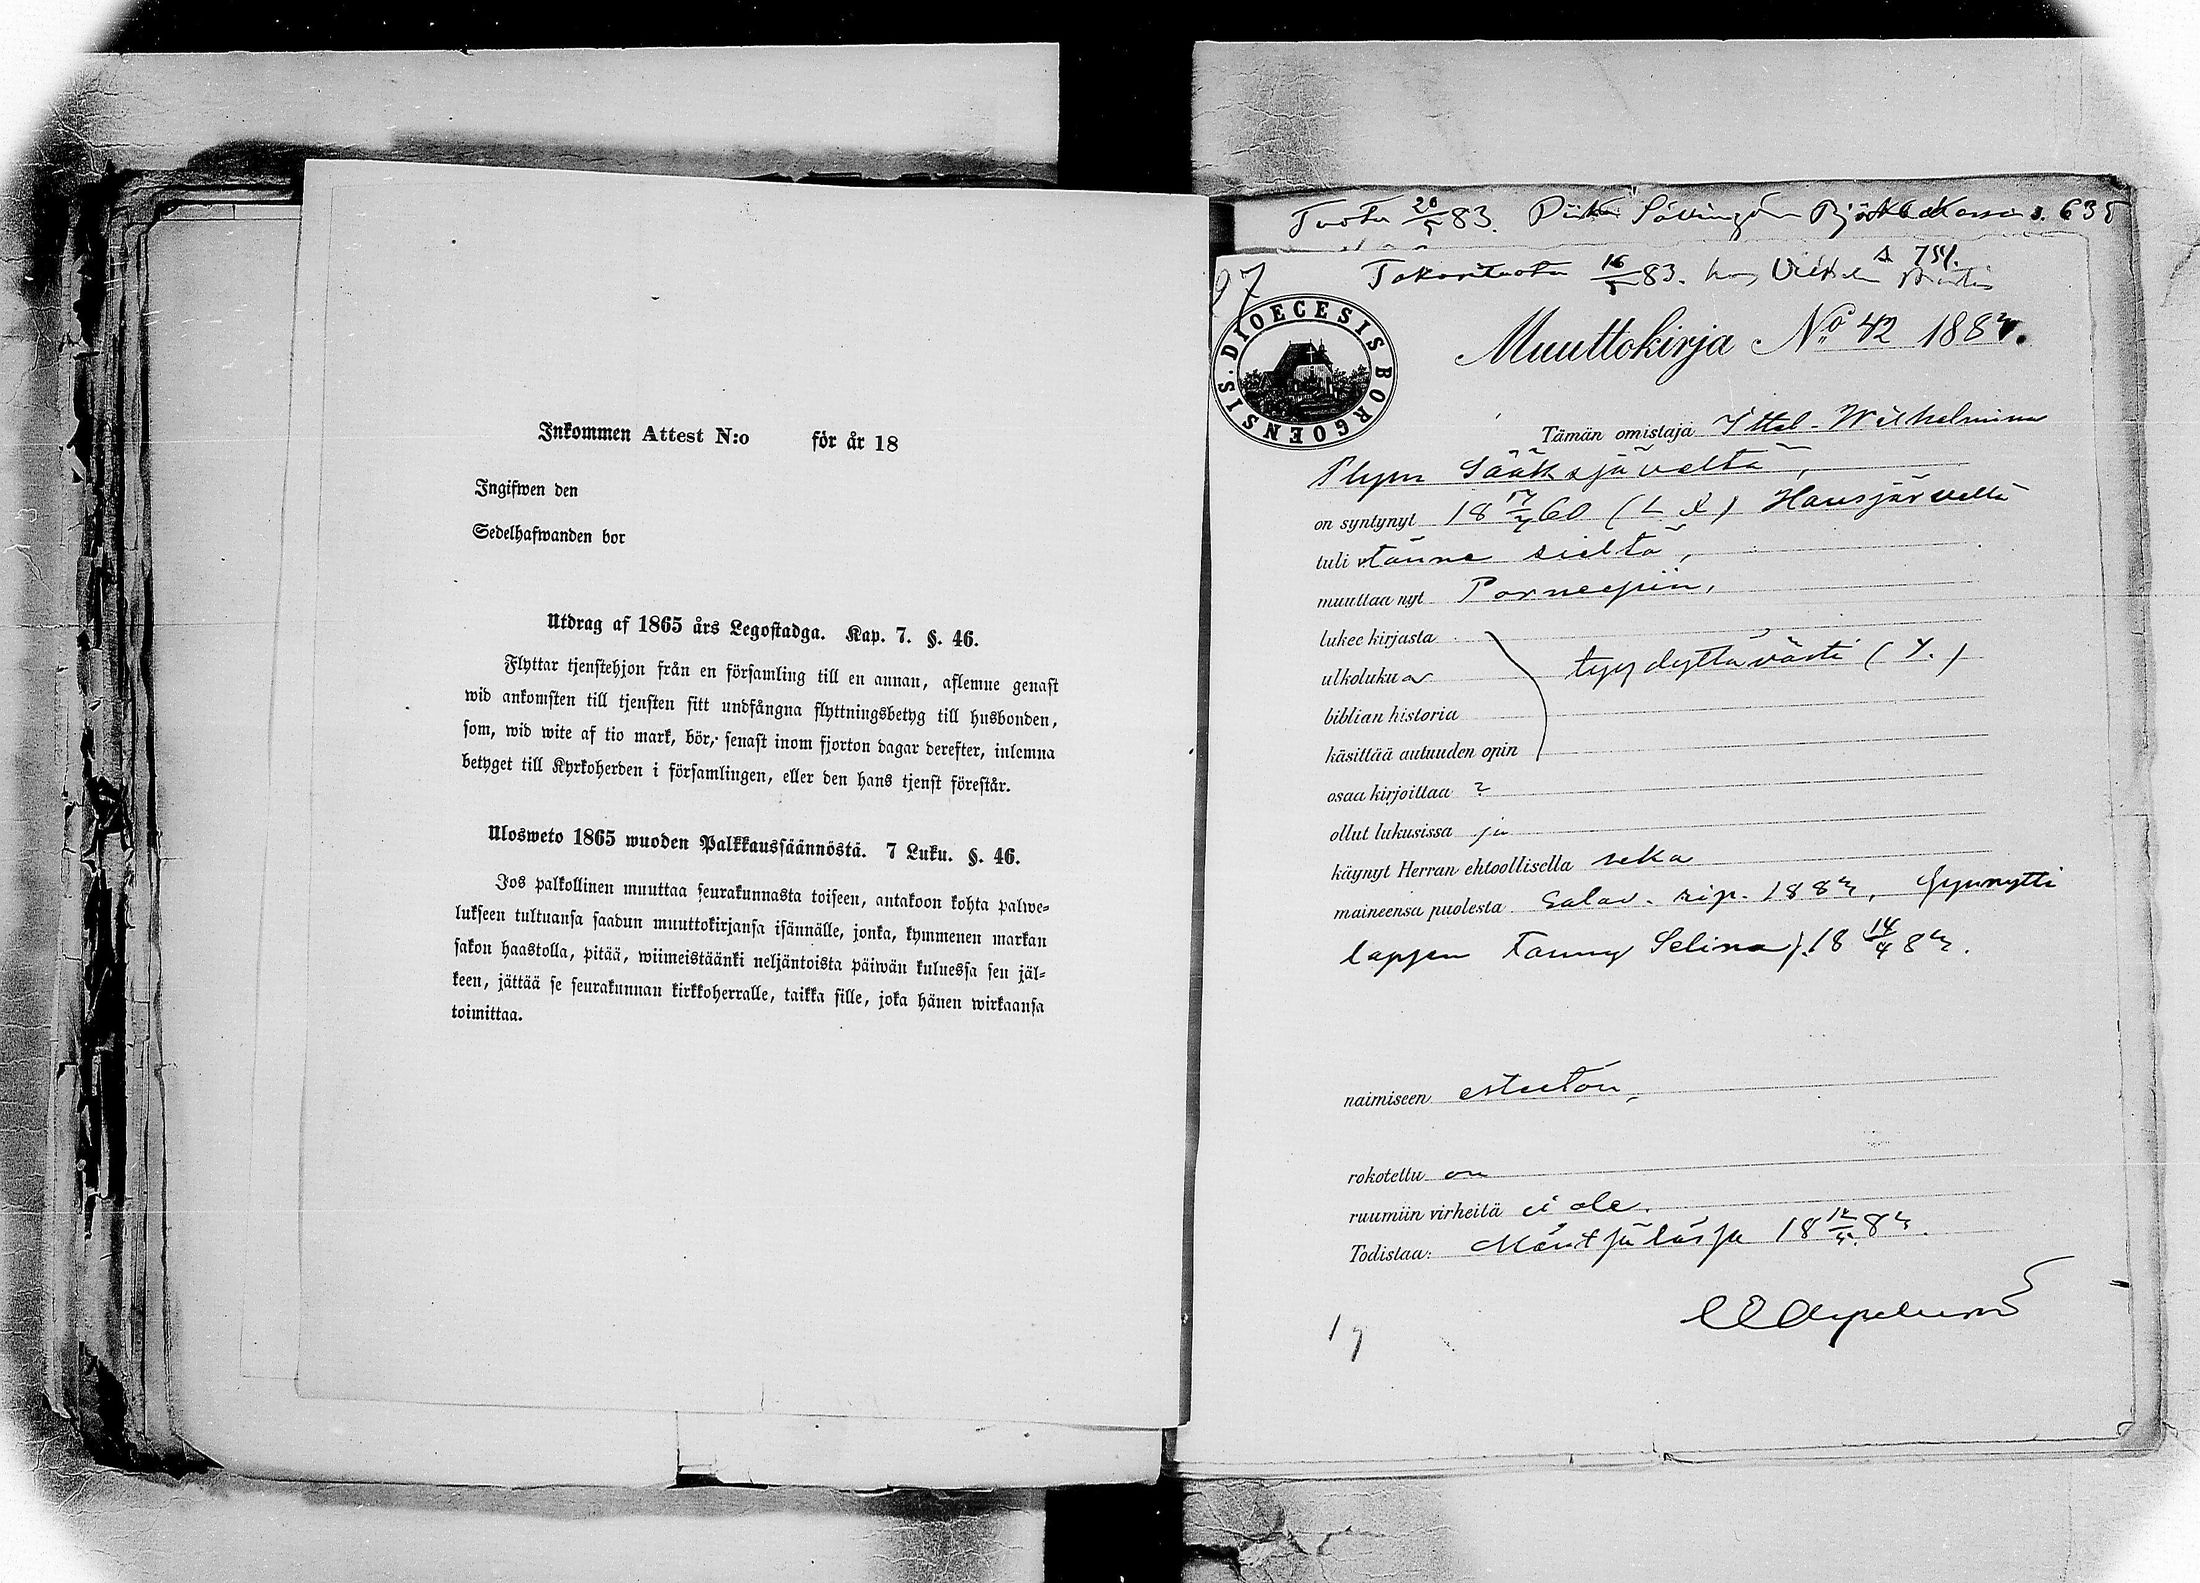 Inkommen Attest N:o för år 18
Ingifwen den
Sedelhafwanden bor
Utdrag af 1865 års Legostadga. Kap. 7. §. 46.
Flyttar tjenstehjon från en församling till en annan, aflemne genast
wid ankomsten till tjensten sitt undfångna flyttningsbetyg till husbonden,
som, wid wite af tio mark, bör, senast inom fjorton dagar derefter, inlemna
betyget till Kyrkoherden i församlingen, eller den hans tjenst förestår.
Ulosweto 1865 wuoden Palkkaussäännöstä. 7 Luku. §. 46.
Jos palkollinen muuttaa seurakunnasta toiseen, antakoon kohta palwe-
lukseen tultuansa saadun muuttokirjansa isännälle, jonka, kymmenen markan
sakon haastolla, pitää, wiimeistäänki neljäntoista päiwän kuluessa sen jäl-
keen, jättää se seurakunnan kirkkoherralle, taikka sille, joka hänen wirkaansa
toimittaa.
Tuotu 20/5 83. Piika s. 635
s 751.
16/5 83.
97
DIOECESIS BORGOENSIS.
Muuttokirja No 42 1883.
Tämän omistaja Wilhelmina
Plym Sääksjäveltä,
on syntynyt 18 17/7 60 (LX) Hausjärvellä
tuli tänne sieltä,
muuttaa nyt Porneesiin,
lukee kirjasta
ulkoluku tyydyttävästi (y.)
biblian historia
käsittää autuuden opin
osaa kirjoittaa ?
ollut lukusissa ja
käynyt Herran ehtoollisella seka
maineensa puolesta Salav. rip. 1883, synnytti
lapsen Fanny Selina 18 14/4 83.
naimiseen esteetön,
rokotettu on
ruumiin virheitä ei ole.
Todistaa: Mäntsälässä 18 12/5 83.